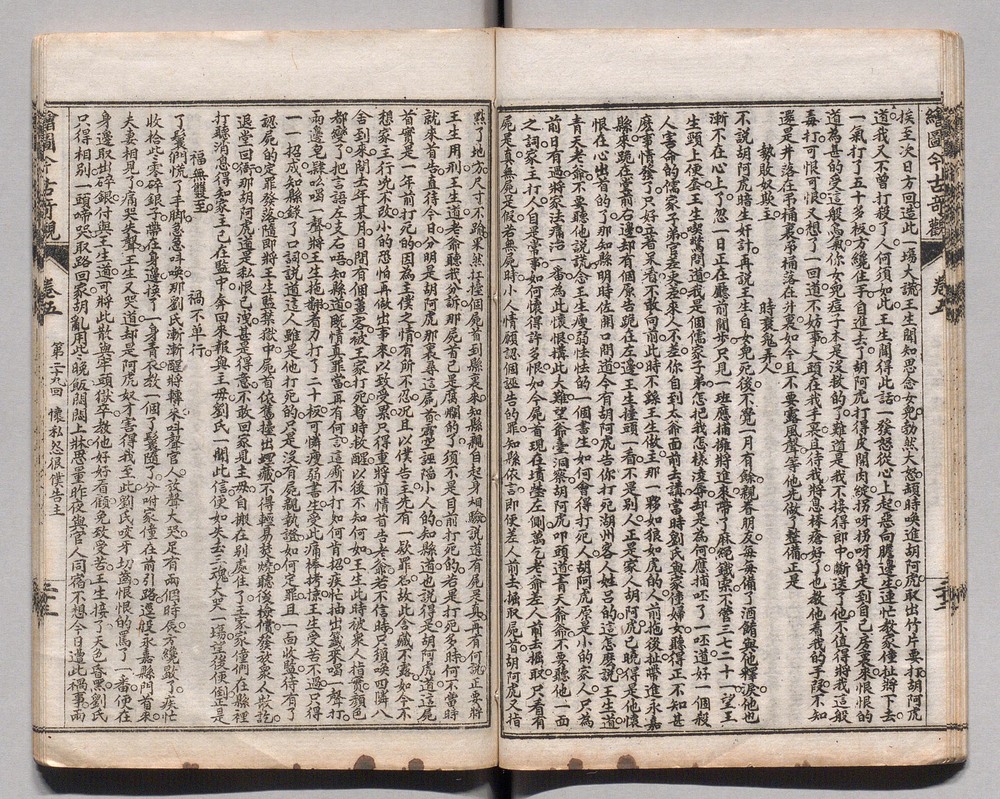 繪圖今古奇觀 卷五
挨至次日方回進此一場大謊王生聞知忿念女兒勃然大怒頓時喚進胡阿虎取出竹片要打胡阿虎
道我又不曾打殺了人何須如此王生聞得此話一發怒從心上起惡向膽邊生連忙教家僮扯將下去
一氣打了五十多板方纔住手自進去了胡阿虎打得皮開肉綻拐呀拐的走到自己房裏來恨恨的
道為甚的受這般鳥氣你女兒痘子本是沒救的了難道是我不接得郎中斷送了他不值得將我這般
毒打可恨可恨又想了一回道不妨事大頭在我手裏且待我將息棒瘡好了也教他看我的手段不知
還是井落在吊桶裏吊桶落在井裏如今且不要露風聲等他先做了整備正是
勢敗奴欺主 時衰鬼弄人
不說胡阿虎暗生奸計再說王生自女兒死後不覺一月有餘親眷朋友每每備了酒餚與他釋淚他也
漸不在心上了忽一日正在廳前閒步只見一班應捕擁將進來帶了麻繩鐵索不管三七二十一望王
生頭上便套王生吃驚問道我是個儒家子弟怎把我恁樣凌辱却是為何應捕呸了一呸道好一個殺
人害命的儒家子弟官差吏差來人不差你自到太爺面前去講當時劉氏與家僮婦女聽得正不知甚
麼事情發了只好立着呆看不敢向前此時不繇王生做主那一夥如狼似虎的人前拖後扯帶進永嘉
縣來跪在堂前右邊却有個原告跪在左邊王生擡頭一看不是別人正是家人胡阿虎已曉得是他懷
恨在心出首的了那知縣明時佐開口問道今有胡阿虎告你打死湖州客人姓呂的這怎麼說王生道
青天老爺不要聽他說謊念王生瘦弱怯怯的一個書生如何會得打死人胡阿虎原是小的家人只為
前日有過將家法痛治一番為此懷恨搆此大難望爺臺洞察胡阿虎叩頭道青天爺爺不要聽他一面
之詞家主打人自是常事如何懷得許多恨如今屍首現在墳塋左側萬乞老爺差人前去掘取只看有
屍是真無屍是假若無屍時小人情願認個誣告的罪知縣依言即便差人前去掘取屍首胡阿虎又指
點了地方尺寸不踰果然扛擡個屍首到縣裏來知縣親自起身相驗說道有屍是真再有何說正要將
王生用刑王生道老爺聽我分訴那屍首已是腐爛的了須不是目前打死的若是打死多時何不當時
就來首告直待今日分明是胡阿虎那裏尋這屍首霹空誣陷小人的知縣道也說得是胡阿虎道這屍
首實是一年前打死的因為主僕之情有所不忍況且以僕告主先有一款罪名故此含藏不露如今不
想家主行兇不改小的恐怕再做出事來以致受累只得重將前情首告老爺若不信時只須喚四隣八
舍到來問去年某月日間有個薑客被王家打死暫時救醒以後不知何如王生此時被衆人指實顏色
都變了把言語左支右唔知縣道既情真罪當再有何言這廝不打如何肯招疾忙抽出籤來喝一聲打
兩邊皂隸吆喝一聲將王生拖翻着力打了二十板可憐瘦弱書生受此痛棒拷掠王生受苦不過只得
一一招成知縣錄了口詞說道這人雖是他打死的只是沒有屍親執證如何定罪且一面收監待有了
認屍的定罪發落隨即將王生監禁獄中屍首依舊擡出埋藏不得輕易焚燒聽後檢償發放衆人散訖
退堂回衙那胡阿虎道是私恨已洩甚是得意不敢回家見主母自搬在別處住了王家家僮們在縣裡
打聽消息得知家主已在監中奔回來報與主母劉氏一聞此信便如失去三魂大哭一場望後便倒正是
福無雙至 禍不單行
了鬟們慌了手脚急急叫喚那劉氏漸漸醒將轉來叫聲官人放聲大哭足有兩個時辰方纔歇了疾忙
收拾些零碎銀子帶在身邊換了一身青衣教一個了鬟隨了分咐家僮在前引路逕投永嘉縣門首來
夫妻相見了痛哭失聲王生又哭道却是阿虎奴才害得我至此劉氏咬牙切齒恨恨的罵了一番便在
身邊取出碎銀付與王生道可將此散與牢頭獄卒教他好好看覷免致受苦王生接了天色昏黑劉氏
只得相別一頭啼哭取路回家胡亂用些晚飯悶悶上牀思量昨夜與官人同宿不想今日遭此禍事兩
繪圖今古奇觀 卷五 第二十九回 懷私怨狠僕告主